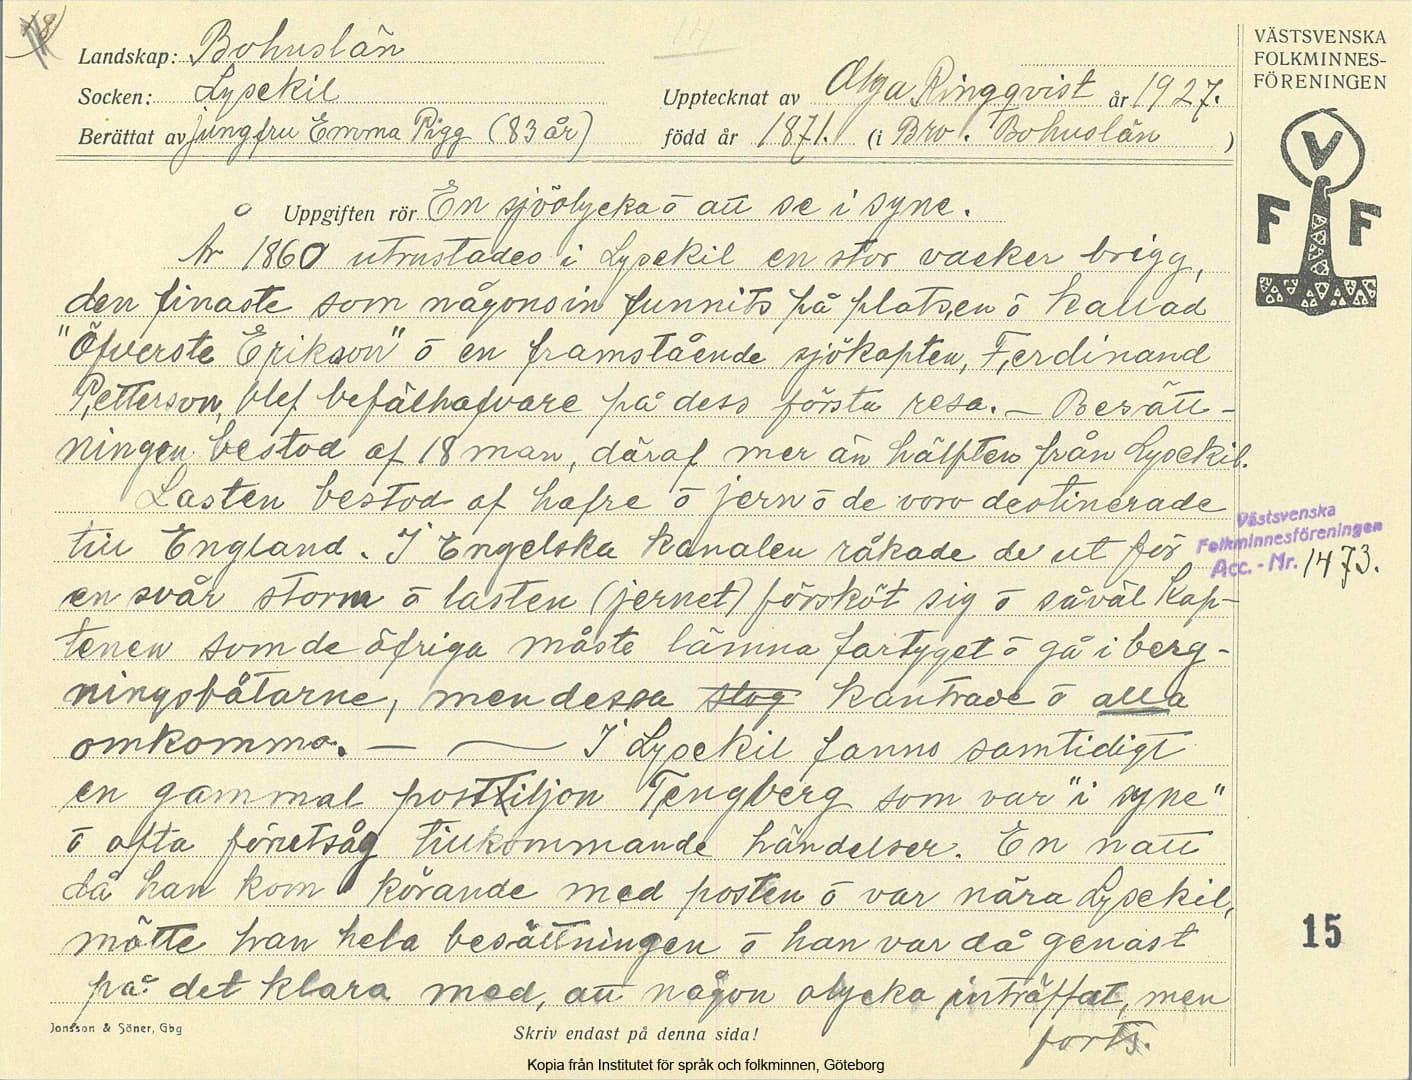 14
Landskap: Bohuslän
Socken: Lysekil
Berättat av jungfru Emma Rigg (83 år)
Upptecknat av Olga Ringqvist år 1927.
född år 1871. (i Bro. Bohuslän )
VÄSTSVENSKA
FOLKMINNES-
FÖRENINGEN
V
F F
Uppgiften rör En sjöolycka ō att se i syne.
År 1860 utrustades i Lysekil en stor vacker brigg,
den finaste som någonsin funnits på platsen ō kallad
"Öfverste Erikson" ō en framstående sjökapten, Ferdinand
Petterson, blef befälhafvare på dess första resa. – Besätt-
ningen bestod af 18 man, däraf mer än hälften från Lysekil.
Lasten bestod af hafre ō jern ō de voro destinerade
till England. I Engelska kanalen råkade de ut för
en svår storm ō lasten (jernet) försköt sig ō såväl kap-
tenen som de öfriga måste lämna fartyget ō gå i berg-
ningsbåtarne, men dessa slog kantrade ō alla
omkommo. — — I Lysekil fanns samtidigt
en gammal postiljon Tengberg som var "i syne"
ō ofta förutsåg tillkommande händelser. En natt
då han kom körande med posten ō var nära Lysekil,
mötte han hela besättningen ō han var då genast
på det klara med, att någon olycka inträffat, men
forts.
Västsvenska
Folkminnesföreningen
Acc. - Nr. 1473.
15
Jonsson & Söner, Gbg
Skriv endast på denna sida!
Kopia från Institutet för språk och folkminnen, Göteborg